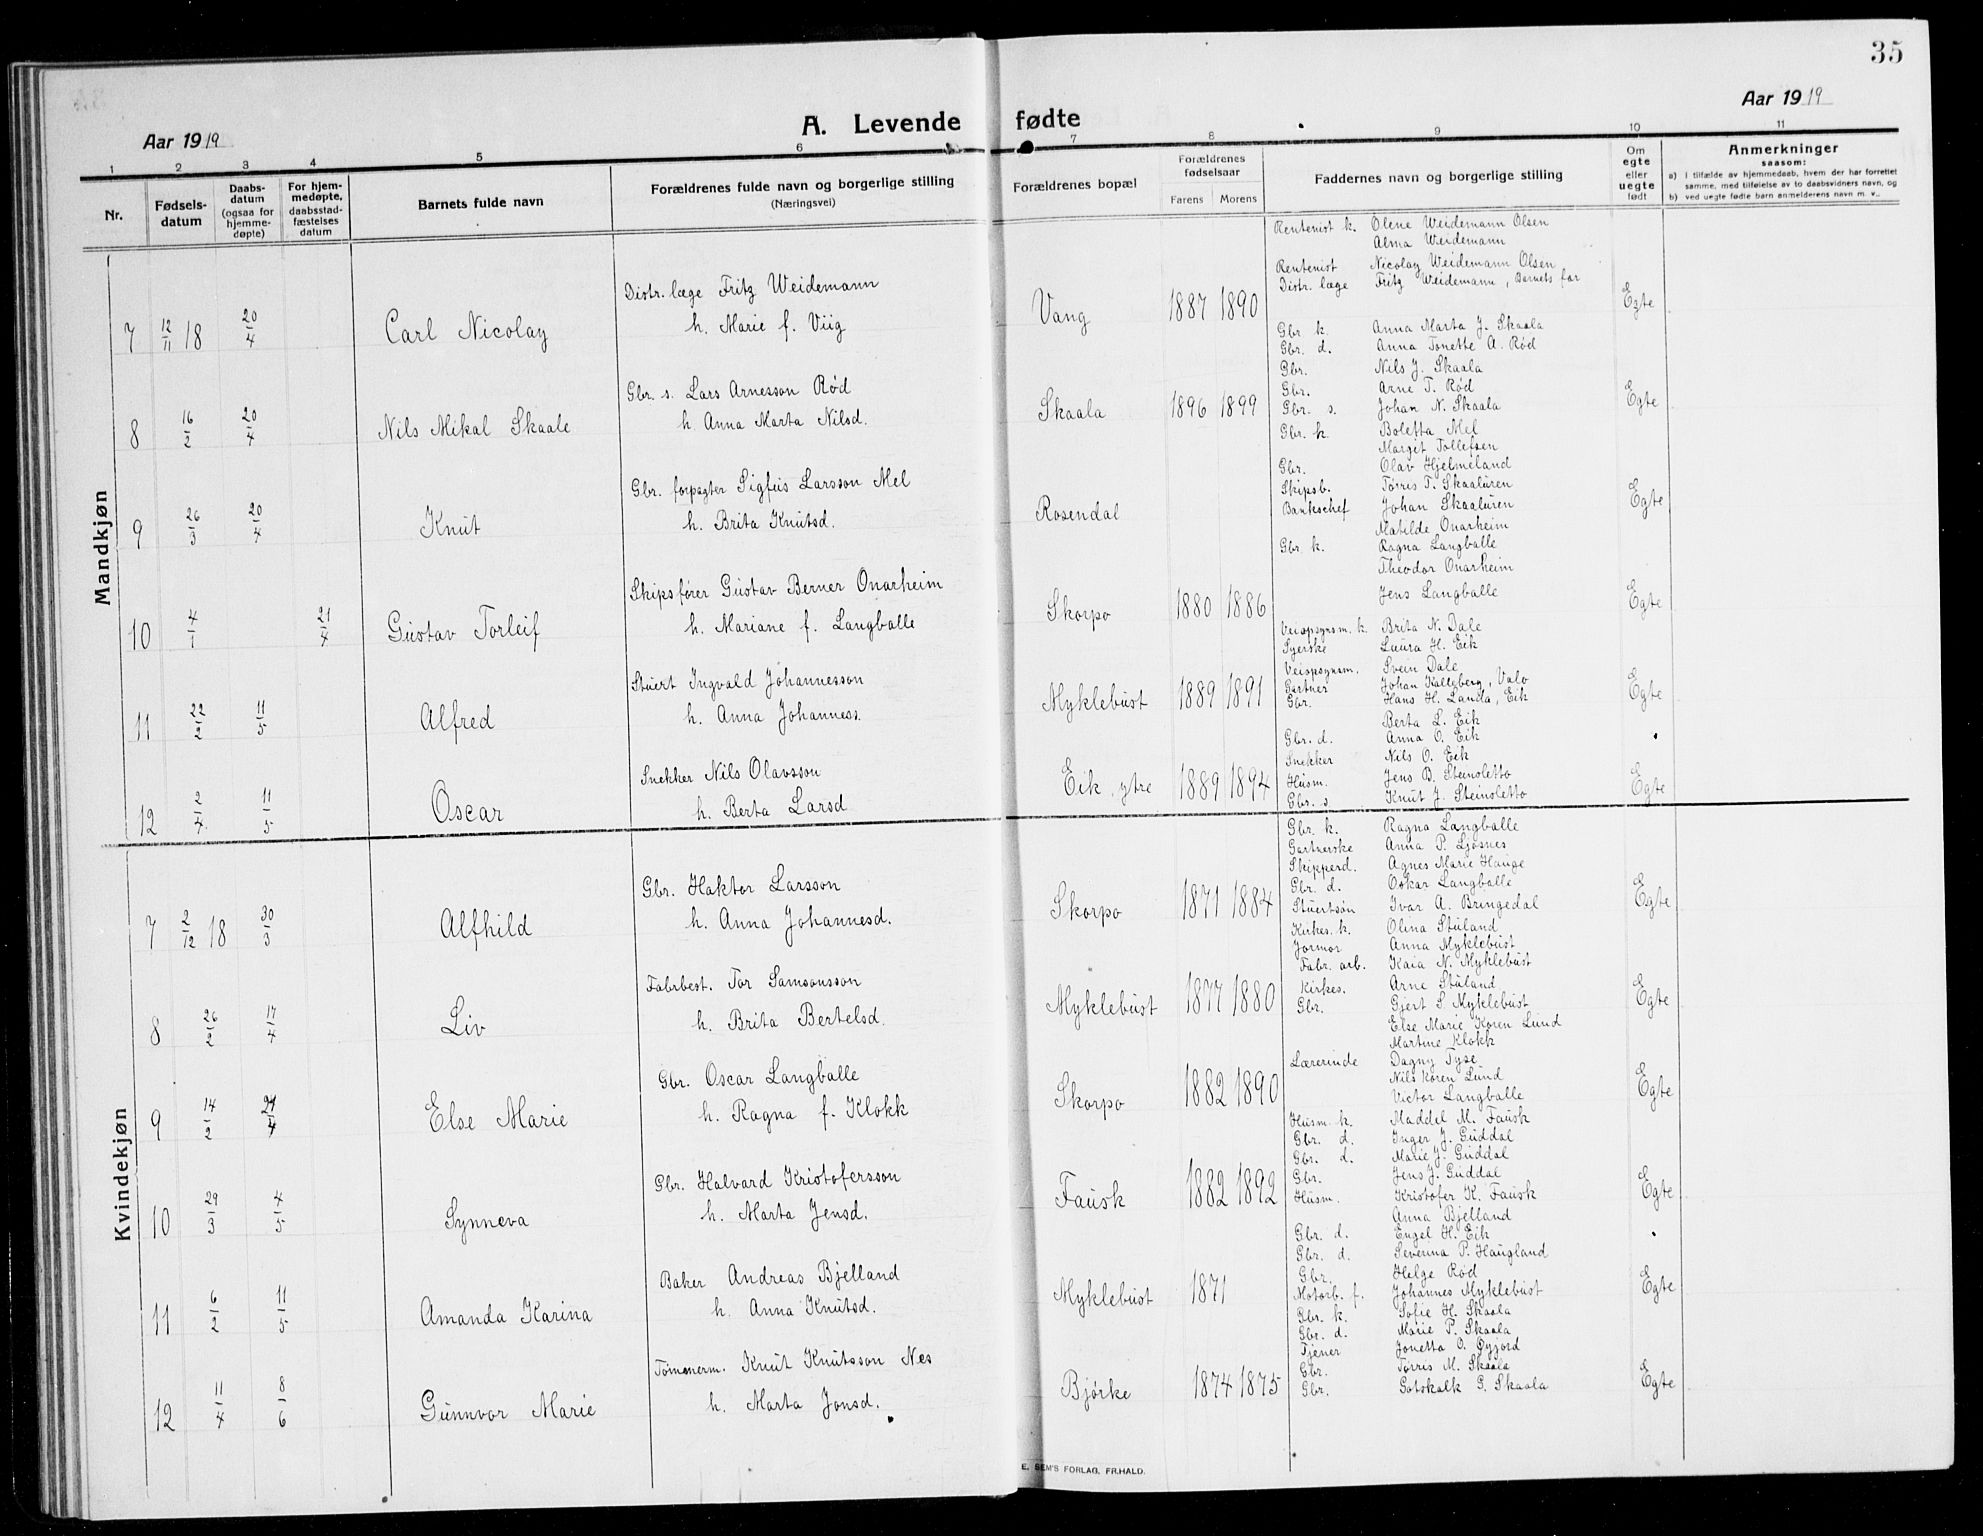 35
Aar 1919
A. Levende fødte
Aar 1919
1 2 3 4 5 6 7 8 9 10 11
Nr.
Fødsels-
datum
Daabs-
datum
(ogsaa for
hjemme-
døpte)
For hjem-
medøpte,
daabsstad-
fæstelses
datum
Barnets fulde navn
Forældrenes fulde navn og borgerlige stilling
(Næringsvei)
Forældrenes bopæl
Forældrenes
fødselsaar
Farens Morens
Faddernes navn og borgerlige stilling
Om
egte
eller
uegte
født
Anmerkninger
saasom:
a) I tilfælde av hjemmedaab, hvem der har forrettet
samme, med tilføielse av to daabsvidners navn, og
b) ved uegte fødte børn anmelderens navn m. v..
Mandkjøn
7 12/11 18 20/4 Carl Nicolay
Distr. læge Fritz Weidemann
h. Marie f. Viig
Vang 1887 1890
Rentenist k. Olene Weidemann Olsen
Alma Weidemann
Rentenist Nicolay Weidemann Olsen
Distr. læge Fritz Weidemann, Barnets far
Egte
8 16/2 20/4 Nils Mikal Skaale
Gbr. s. Lars Arnesson Rød
h. Anna Marta Nilsd.
Skaala 1896 1899
Gbr. k. Anna Marta J. Skaala
Gbr. d. Anna Tonette A. Rød
Gbr. Nils J. Skaala
Gbr. Arne T. Rød
Gbr. s. Johan N. Skaala
Egte
9 26/3 20/4 Knut
Gbr. forpagter Sigfus Larsson Mel
h. Brita Knutsd.
Rosendal
Gbr. k. Boletta Mel
Margit Tollefsen
Gbr. Olav Hjelmeland
Skipsb. Tørris T. Skaaluren
Bankschef Johan Skaaluren
Egte
10 4/1 21/4 Gustav Torleif
Skipsfører Gustav Berner Onarheim
h. Mariane f. Langballe
Skorpo 1880 1886
Matilde Onarheim
Gbr. k. Ragna Langballe
Theodor Onarheim
Jens Langballe
Egte
11 22/2 11/5 Alfred
Stuert Ingvald Johannesson
h. Anna Johanness.
Myklebust 1889 1891
Veiopsynsm. k. Brita N. Dale
Syerske Laura H. Eik
Veiopsynsm. Svein Dale
Gartner Johan Kalleberg, Valo
Gbr. Hans H. Landa, Eik
Egte
12 2/4 11/5 Oscar
Snekker Nils Olavsson
h. Berta Larsd
Eik, ytre 1889 1894
Berta L. Eik
Gbr. d. Anna O. Eik
Snekker Nils O. Eik
Husm. Jens B. Steinsletto
Gbr. s Knut J. Steinsletto
Egte
Kvindekjøn
7 2/12 18 30/3 Alfhild
Gbr. Haktor Larsson
h. Anna Johannesd.
Skorpo 1871 1884
Gbr. k. Ragna Langballe
Gartnerske Anna P. Ljosnes
Skipperd. Agnes Marie Hauge
Gbr. d. Oskar Langballe
Stuertsøn Ivar A. Bringedal
Egte
8 26/2 17/4 Liv
Fabrbest. Tor Samsonsson
h. Brita Bertelsd.
Myklebust 1877 1880
Kirkes. k. Olina Støland
Jormor Anna Myklebust
Fabr. arb. Kaia N. Myklebust
Kirkes. Arne Støland
Gbr. Gjert S Myklebust
Egte
9 14/2 Else Marie
Gbr. Oscar Langballe
h. Ragna f. Klokk
Skorpo 1882 1890
Else Marie Koren Lund
Martine Klokk
Lærerinde Dagny Tyse
Nils Koren Lund
Victor Langballe
Egte
10 29/3 4/5 Synneva
Gbr. Halvard Kristofersson
h. Marta Jensd.
Fausk 1882 1892
Husm. k. Maddel M. Fausk
Gbr. d. Inger J. Guddal
Gbr. d. Marie J. Guddal
Gbr. Jens J. Guddal
Husm. Kristofer K. Fausk
Egte
11 6/2 11/5 Amanda Karina
Baker Andreas Bjelland
h. Anna Knutsd.
Myklebust 1871
Anna Bjelland
Gbr. d. Engel H. Eik
Gbr. d. Severina P. Haugland
Gbr. Helge Rød
Motorb. f. Johannes Myklebust
Egte
12 11/4 8/6 Gunnvor Marie
Tømmerm. Knut Knutsson Nes
h. Marta Jonsd.
Bjørke 1874 1875
Gbr. k. Sofie H. Skaala
Gbr. d. Marie P. Skaala
Tjener Jonetta O. Øyjord
Gbr. Tørris M. Skaala
Gbr. Gotskalk G. Skaala
Egte
E. SEM'S FORLAG, FR.HALD.